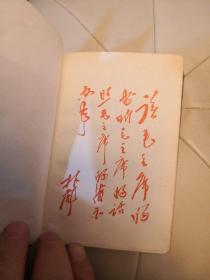 读毛主席的
书听毛主席的话
照毛主席的指示
办事
林彪